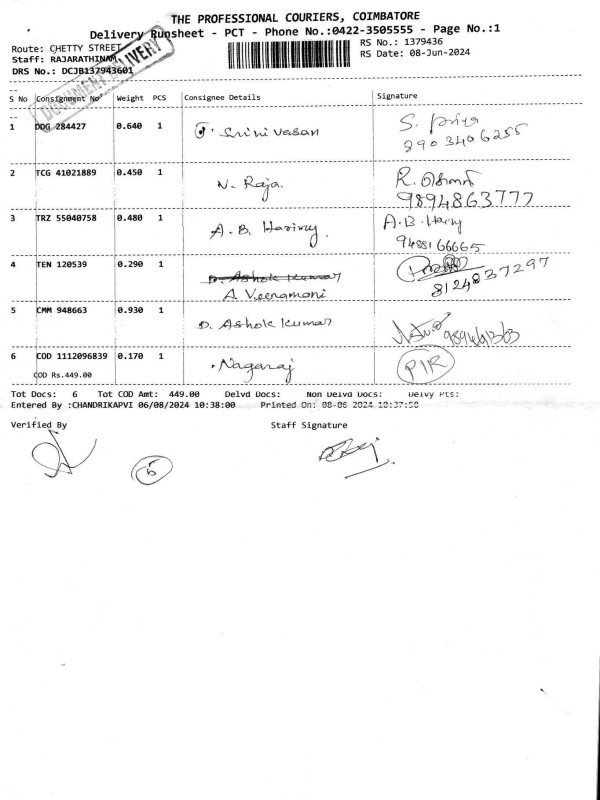 THE PROFESSIONAL COURIERS, COIMBATORE
Delivery Runsheet - PCT - Phone No.:0422-3505555 - Page No.:1
Route: CHETTY STREET
RS No.: 1379436
Staff: RAJARATHINAM
RS Date: 08-Jun-2024
DRS No.: DCJB137943601
DOCUMENT DELIVERY
S No Consignment No Weight PCS Consignee Details Signature
1 DDG 284427 0.640 1 Srinivasan S. Priya
8903406255
2 TCG 41021889 0.450 1 N. Raja. R.
9894863777
3 TRZ 55040758 0.480 1 A. B. Hariny. A.B. Hariny
9488166665
4 TEN 120539 0.290 1 D. Ashok Kumar
A. Veeramani 8124837297
5 CMM 948663 0.930 1 D. Ashok Kumar
6 COD 1112096839 0.170 1 Nagaraj PIR
COD Rs.449.00
Tot Docs: 6 Tot COD Amt: 449.00 Delvd Docs: Non Delvd Docs: Delvy Pts:
Entered By :CHANDRIKAPVI 06/08/2024 10:38:00 Printed On: 08-06 2024 10:37:58
Verified By Staff Signature
5